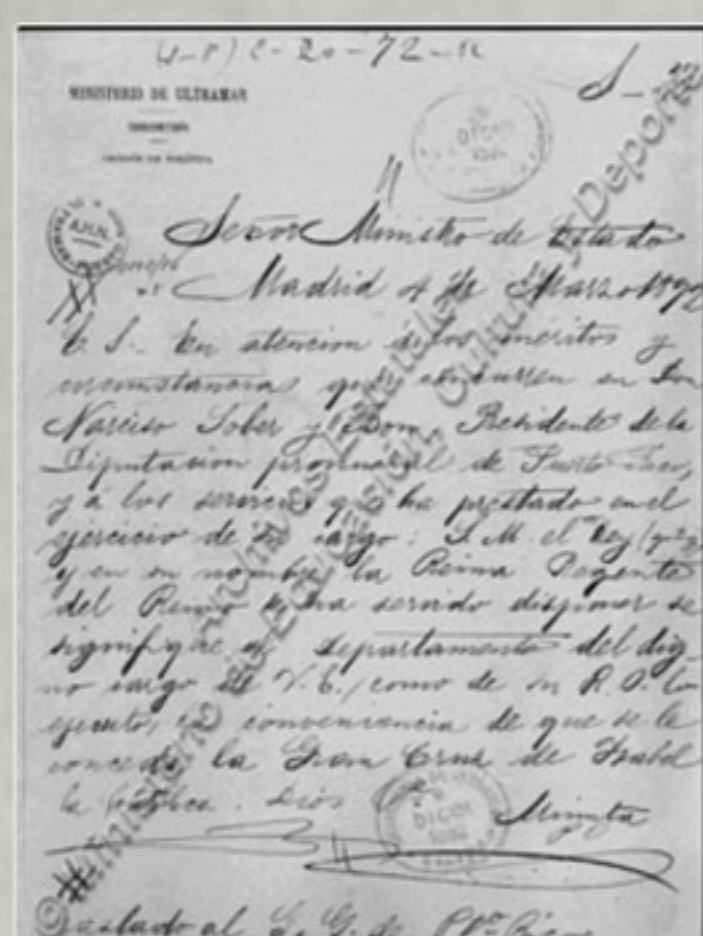 (4-P) 2-20-72-
MINISTERIO DE ULTRAMAR
SECCIÓN DE POLÍTICA
A.H.N.
DICI
Señor Ministro de Estado
Madrid 4 de Marzo 189
E. S. En atencion á los méritos y
circunstancias que concurren en Don
Narciso Sober y Dom, Presidente de la
Diputacion provincial de Puerto Rico,
y á los servicios que ha prestado en el
ejercicio de su cargo: S. M. el Rey (q D g
y en su nombre la Reina Regente
del Reino se ha servido disponer se
signifique al Departamento del dig_
no cargo de V. E., como de su R. O. lo
ejecuto, la conveniencia de que se le
conceda la Gran Cruz de Isabel
la Católica. Dios
Minuta
DICI
Traslado al G. G. de Pto Rico
© Ministerio de Educación, Cultura y Deporte
Archivos Estatales